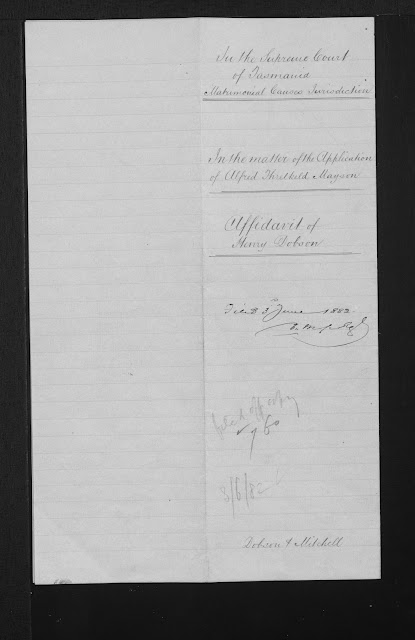 In the Supreme Court
of Tasmania
Matrimonial Causes Jurisdiction
In the matter of the Application
of Alfred Threlkeld Mayson
Affidavit of
Henry Dobson
Filed 3rd June 1882
3/6/82
Dobson & Mitchell